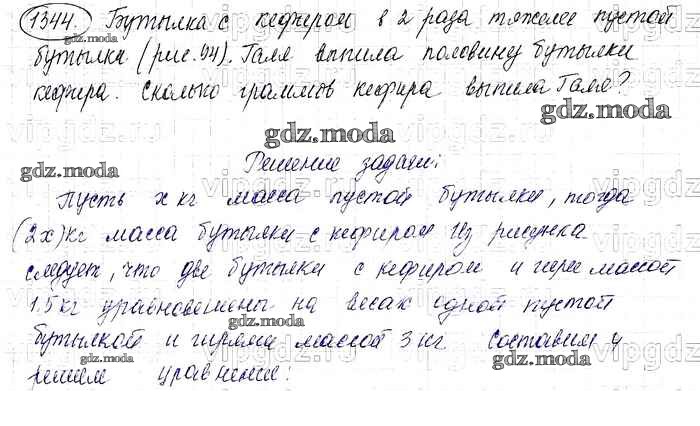 1344. Бутылка с кефиром в 2 раза тяжелее пустой
бутылки (рис. 94). Галя выпила половину бутылки
кефира. Сколько граммов кефира выпила Галя?
Решение задачи:
Пусть x кг масса пустой бутылки, тогда
(2x) кг масса бутылки с кефиром Из рисунка
следует, что две бутылки с кефиром и гири массой
1.5 кг уравновешены на весах одной пустой
бутылкой и гирями массой 3 кг. Составим и
решим уравнение:
gdz.moda
gdz.moda
gdz.moda
gdz.moda
gdz.moda
gdz.moda
gdz.moda